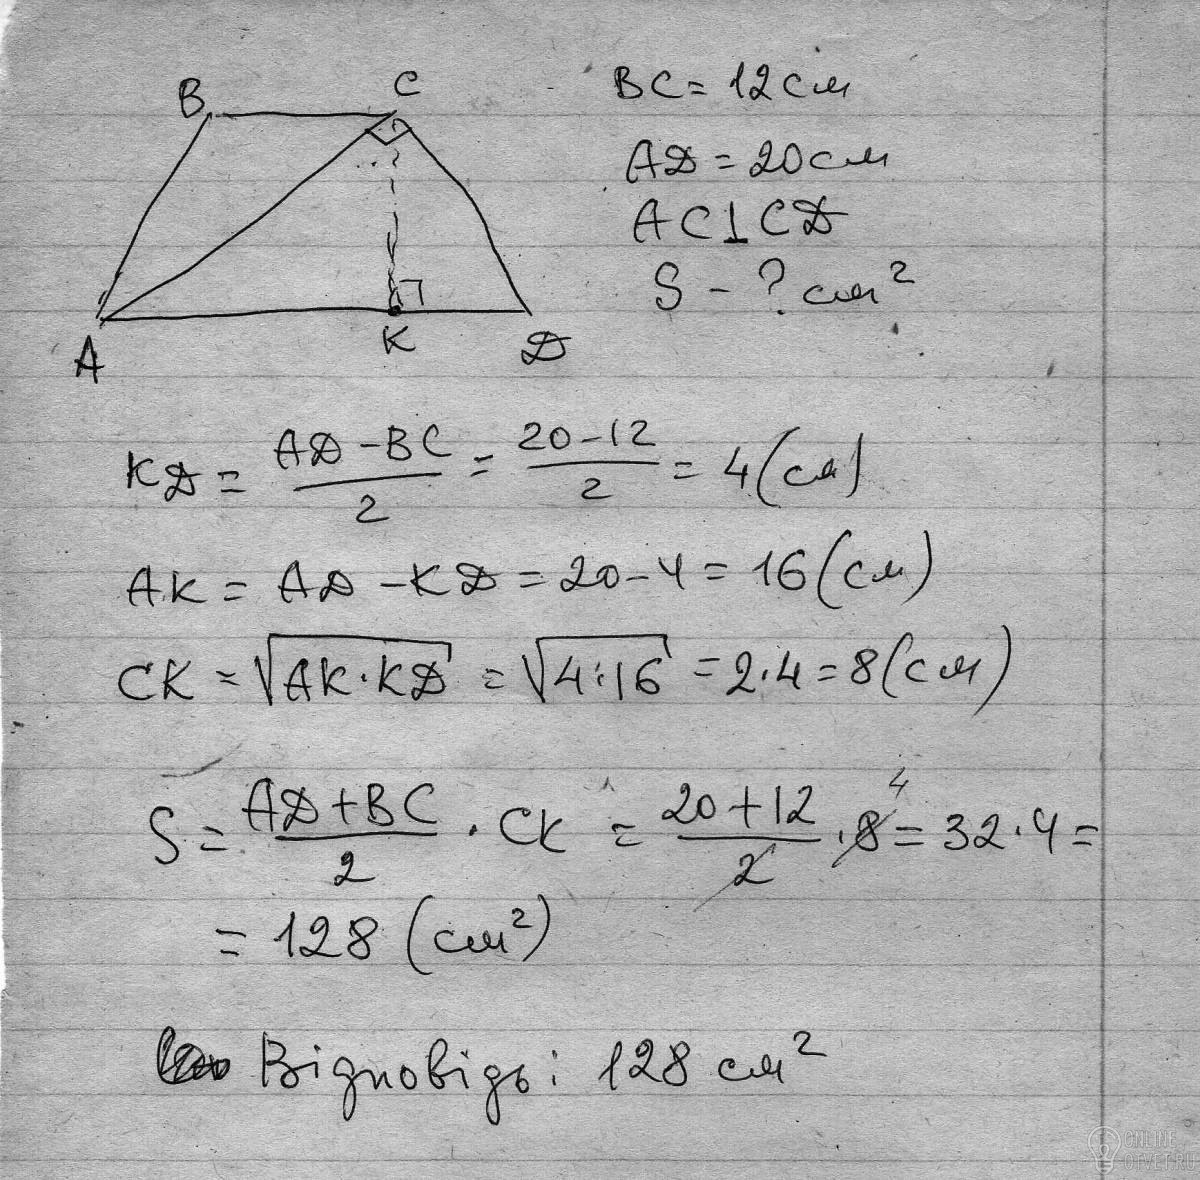 B C
A K D
BC = 12 см
AD = 20 см
AC ⊥ CD
S - ? см²
KD = (AD - BC)/2 = (20 - 12)/2 = 4 (см)
AK = AD - KD = 20 - 4 = 16 (см)
CK = √(AK · KD) = √(4 · 16) = 2 · 4 = 8 (см)
S = (AD + BC)/2 · CK = (20 + 12)/2 · 8 4 = 32 · 4 =
= 128 (см²)
Відповідь: 128 см²
ONLINE
OTVET.RU